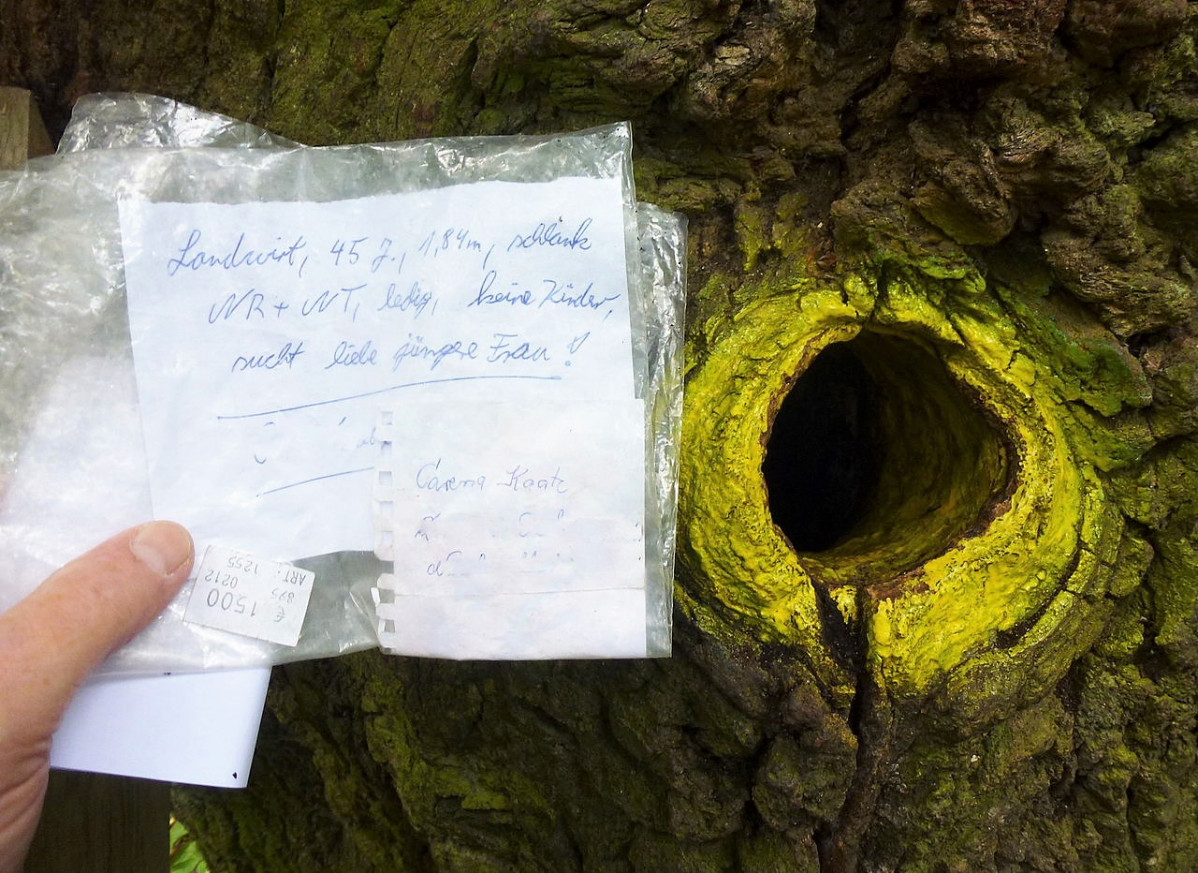 Landwirt, 45 J., 1,84m, schlank
NR + NT, ledig, keine Kinder,
sucht liebe jüngere Frau!
Carena
€
895
1500
0212
ART: 1255